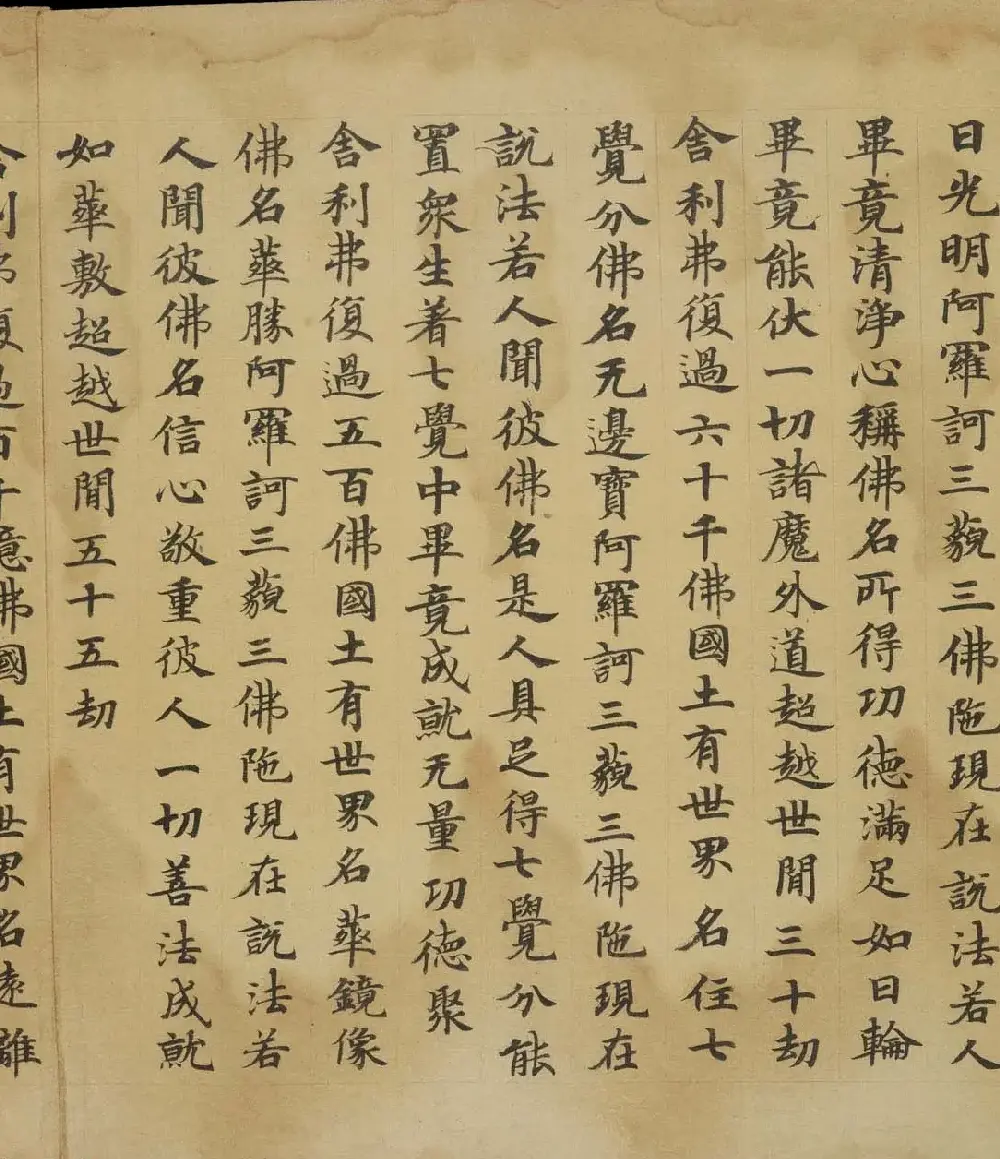 日光明阿羅訶三藐三佛陁現在說法若人
畢竟清淨心稱佛名所得功德滿足如日輪
畢竟能伏一切諸魔外道超越世閒三十劫
舍利弗復過六十千佛國土有世界名住七
覺分佛名无邊寶阿羅訶三藐三佛陁現在
說法若人聞彼佛名是人具足得七覺分能
置衆生著七覺中畢竟成就无量功德聚
舍利弗復過五百佛國土有世界名華鏡像
佛名華勝阿羅訶三藐三佛陁現在說法若
人聞彼佛名信心敬重彼人一切善法成就
如華敷超越世閒五十五劫
舍利弗復過百千億佛國土有世界名遠離